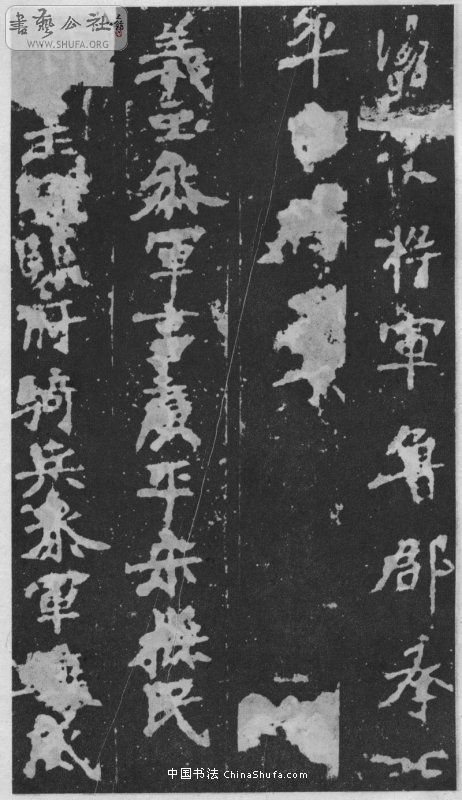 書藝公社
WWW.SHUFA.ORG
盪寇將軍魯郡丞北
平
義主參軍事廣平宋撫民
主驤府騎兵參軍威
中国书法 ChinaShufa.com